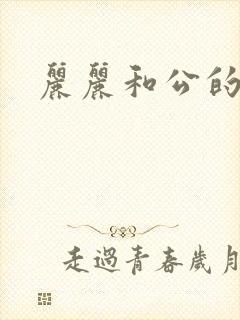 麗麗和公的
走過青春歲月